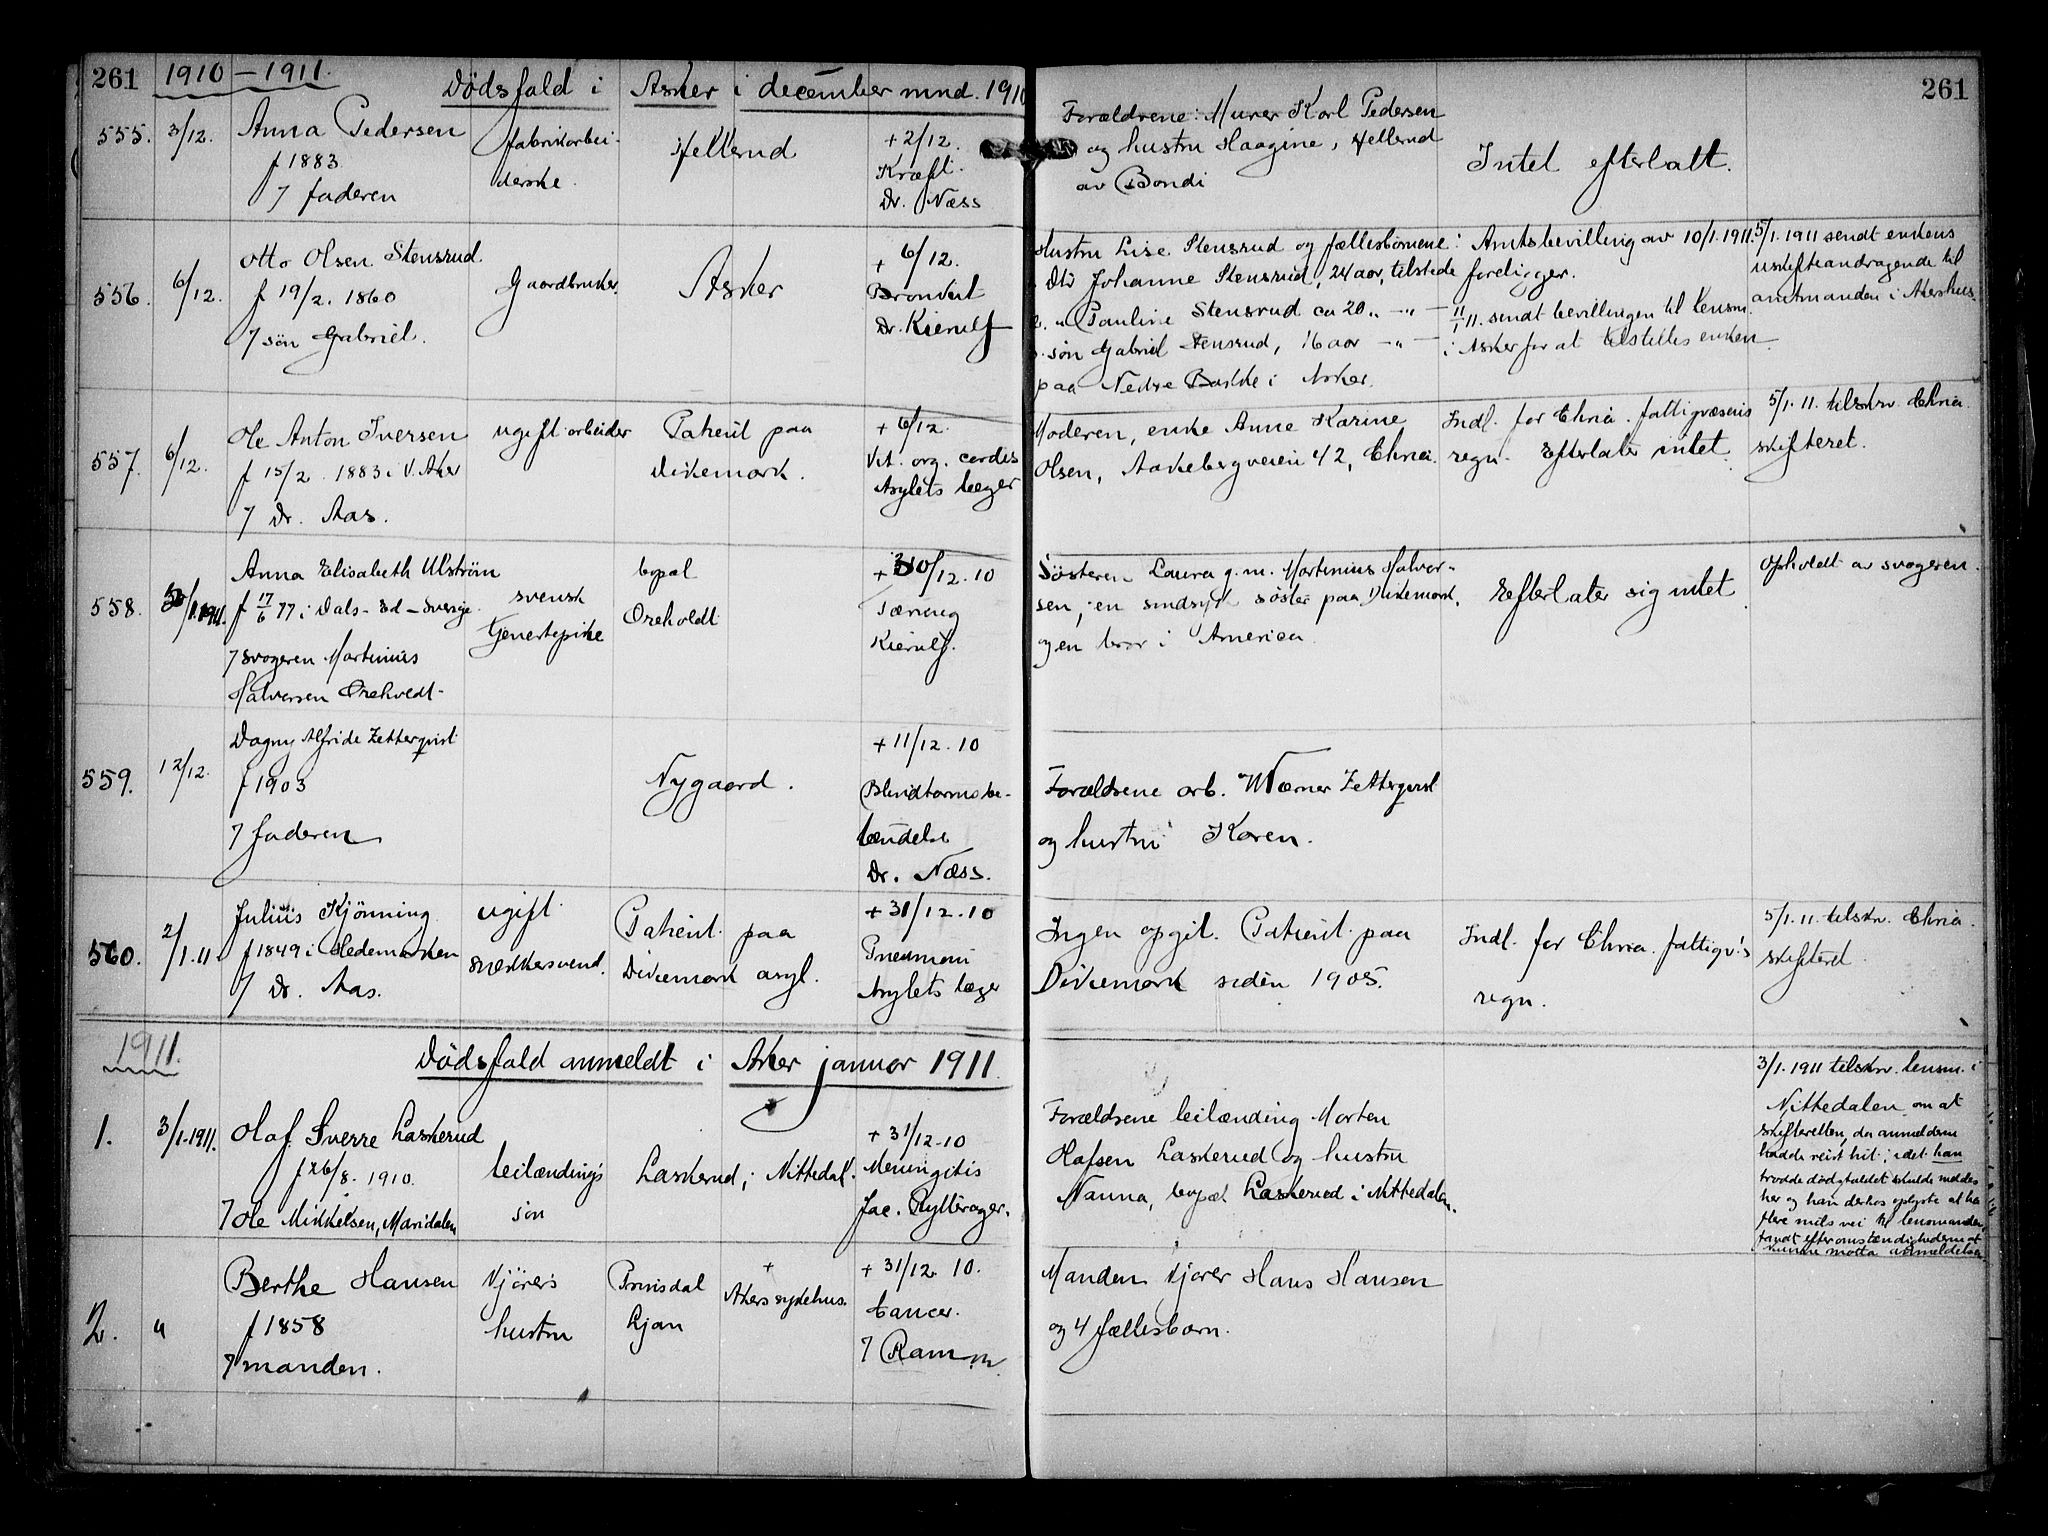 261 1910 – 1911. Dödsfald i Asker i december mnd. 1910 261
555. 3/12. Anna Pedersen
f 1883
7 faderen
fabrikarbei-
derske.
Hellerud
+ 2/12.
Kræft.
Dr. Næss
Forældrene: Murer Karl Pedersen
og hustru Haagine, Hellerud
av Bondi
Intet efterlatt.
556. 6/12. Otto Olsen Stensrud
f 19/2. 1860
7 sön Gabriel.
Gaardbruker.
Asker
+ 6/12.
Bronkit
Dr. Kierulf
Hustru Lise Stensrud og fællesbörnene:
Dtr Johanne Stensrud, 24 aar, tilstede
2. " Pauline Stensrud ca 20 " —"—
3. sön Gabriel Stensrud, 16 aar —"—
paa Nedre Bakke i Asker.
Amtsbevilling av 10/1. 1911.
foreligger.
11/1 11. sendt bevillingen til lensm.
i Asker for at tilstilles enken.
5/1. 1911 sendt enkens
uskifteandragende til
amtmanden i Akershus.
557. 6/12. Ole Anton Iversen
f 15/2. 1883 i V. Aker
7 Dr. Aas.
ugift arbeider
Patient paa
Dikemark.
+ 6/12.
Vit. org. cordis
Asylets læger
Moderen, enke Anne Karine
Olsen, Aakebergveien 42, Chria.
Indl. for Chria. fattigvæsens
regn. Efterlater intet.
5/1. 11. tilskr. Chria.
skifteret.
558. /1.1911. Anna Elisabeth Ulström
f 17/6 77 i Dals-Ed-Sverige.
7 svogeren Martinius
Halversen Orehvedt-
svensk
tjenestepike
bopæl
Oreholdt
+ 30/12. 10
Tæring
Kierulf.
Sösteren Laura g. m. Martinius Halver-
sen; en sindsyk söster paa Dikemark,
og en bror i America.
Efterlater sig intet
Opholdt av svogeren.
559. 12/12. Dagny Alfride Zetterqvist
f 1903
7 faderen
Nygaard.
+ 11/12. 10
Blindtarmsbe-
tændelse
Dr. Næss.
Forældrene arb. Werner Zetterqvist
og hustru Karen.
560. 2/1. 11. Julius Kjönning
f 1849 i Hedemarken
7 Dr. Aas.
ugift
snedkersvend.
Patient paa
Dikemark asyl.
+ 31/12. 10
Pneumoni
Asylets læger
Ingen opgit. Patient paa
Dikemark siden 1905.
Indl. for Chria. fattigv's
regn.
5/1. 11. tilskr. Chria.
skifteret.
1911. Dödsfald anmeldt i Aker januar 1911.
1. 3/1.1911. Olaf Sverre Laskerud
f 26/8. 1910.
7 Ole Mikkelsen, Maridalen
leilændings
sön
Laskerud, i Nittedal.
+ 31/12.10
Meningitis
Jac. Rytterager.
Forældrene leilænding Morten
Olafsen Laskerud og hustru
Nanna, bopæl Laskerud i Nittedalen.
3/1. 1911 tilskr. lensm. i
Nittedalen om at
skifteretten, da anmelderen
hadde reist hit, idet han
trodde dödsfaldet skulde meldes
her og han derhos oplyste at ha
flere mils vei til lensmanden,
fandt efter omstændighederne at
kunne motta anmeldelsen
2. " Berthe Hansen
f 1858
7 manden.
Kjörers
hustru
Prinsdal
Ljan
+
Akers sykehus.
+ 31/12. 10.
Cancer.
7 Ramm
Manden kjörer Hans Hansen
og 4 fællesbarn.